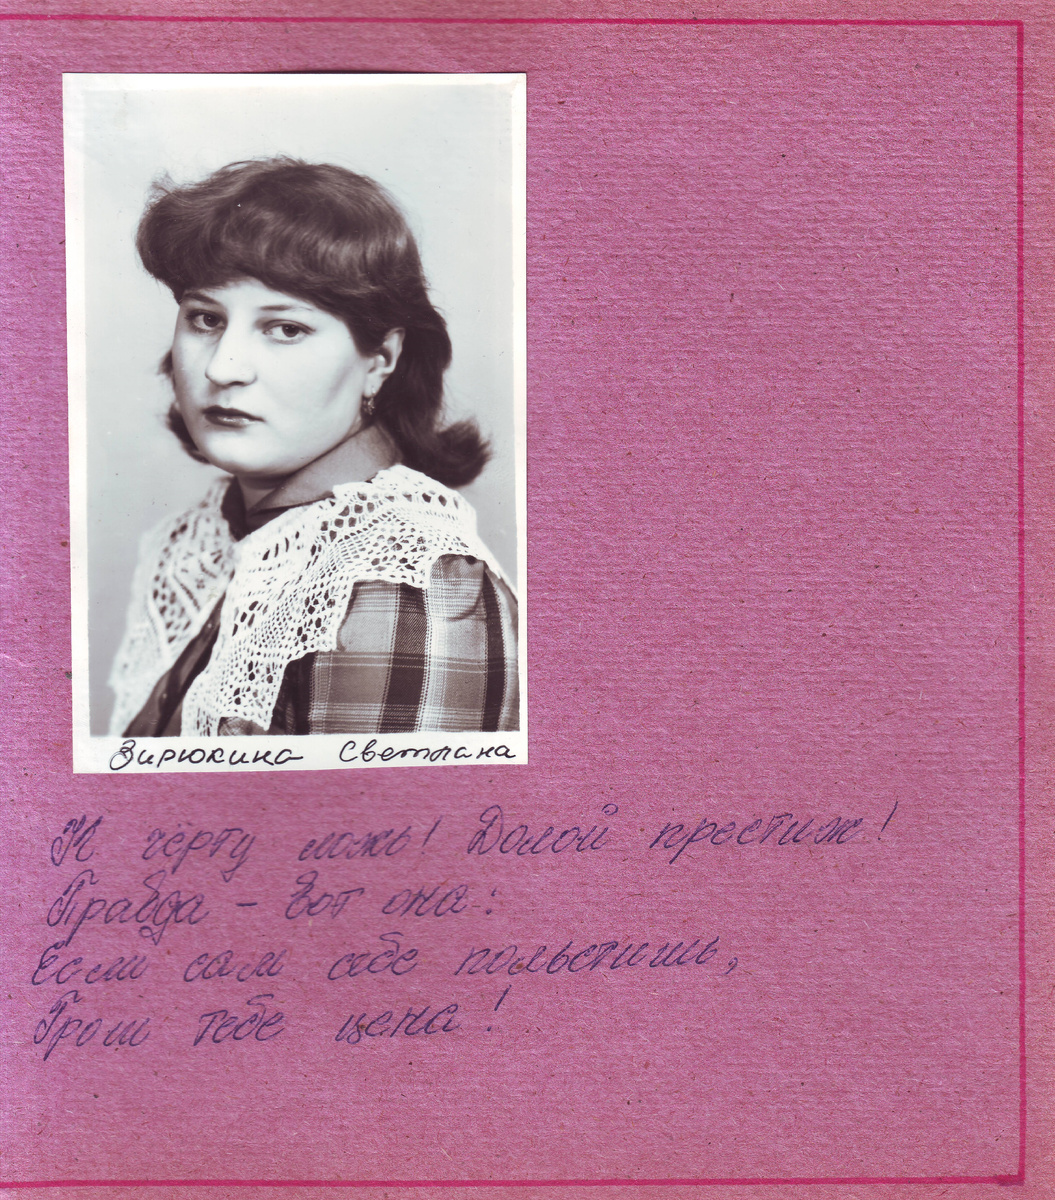 Зирюкина Светлана
К чёрту ложь! Долой престиж!
Правда – вот она:
Если сам себе польстишь,
Грош тебе цена!